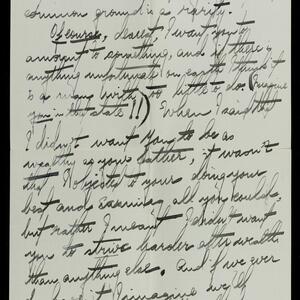 common ground is a rarity.
Of course, dearest, I want you to
amount to something, and if there is
anything unfortunate on earth I think it
is a man with no to do
you in that state!!) When I said that
I didn't want you to be as
wealthy as your father, it wasn't
that I objected to your doing your
best and earning all you could,
but rather I meant I didn't want
you to strive harder after wealth
than anything else. And if we ever
I imagine myself